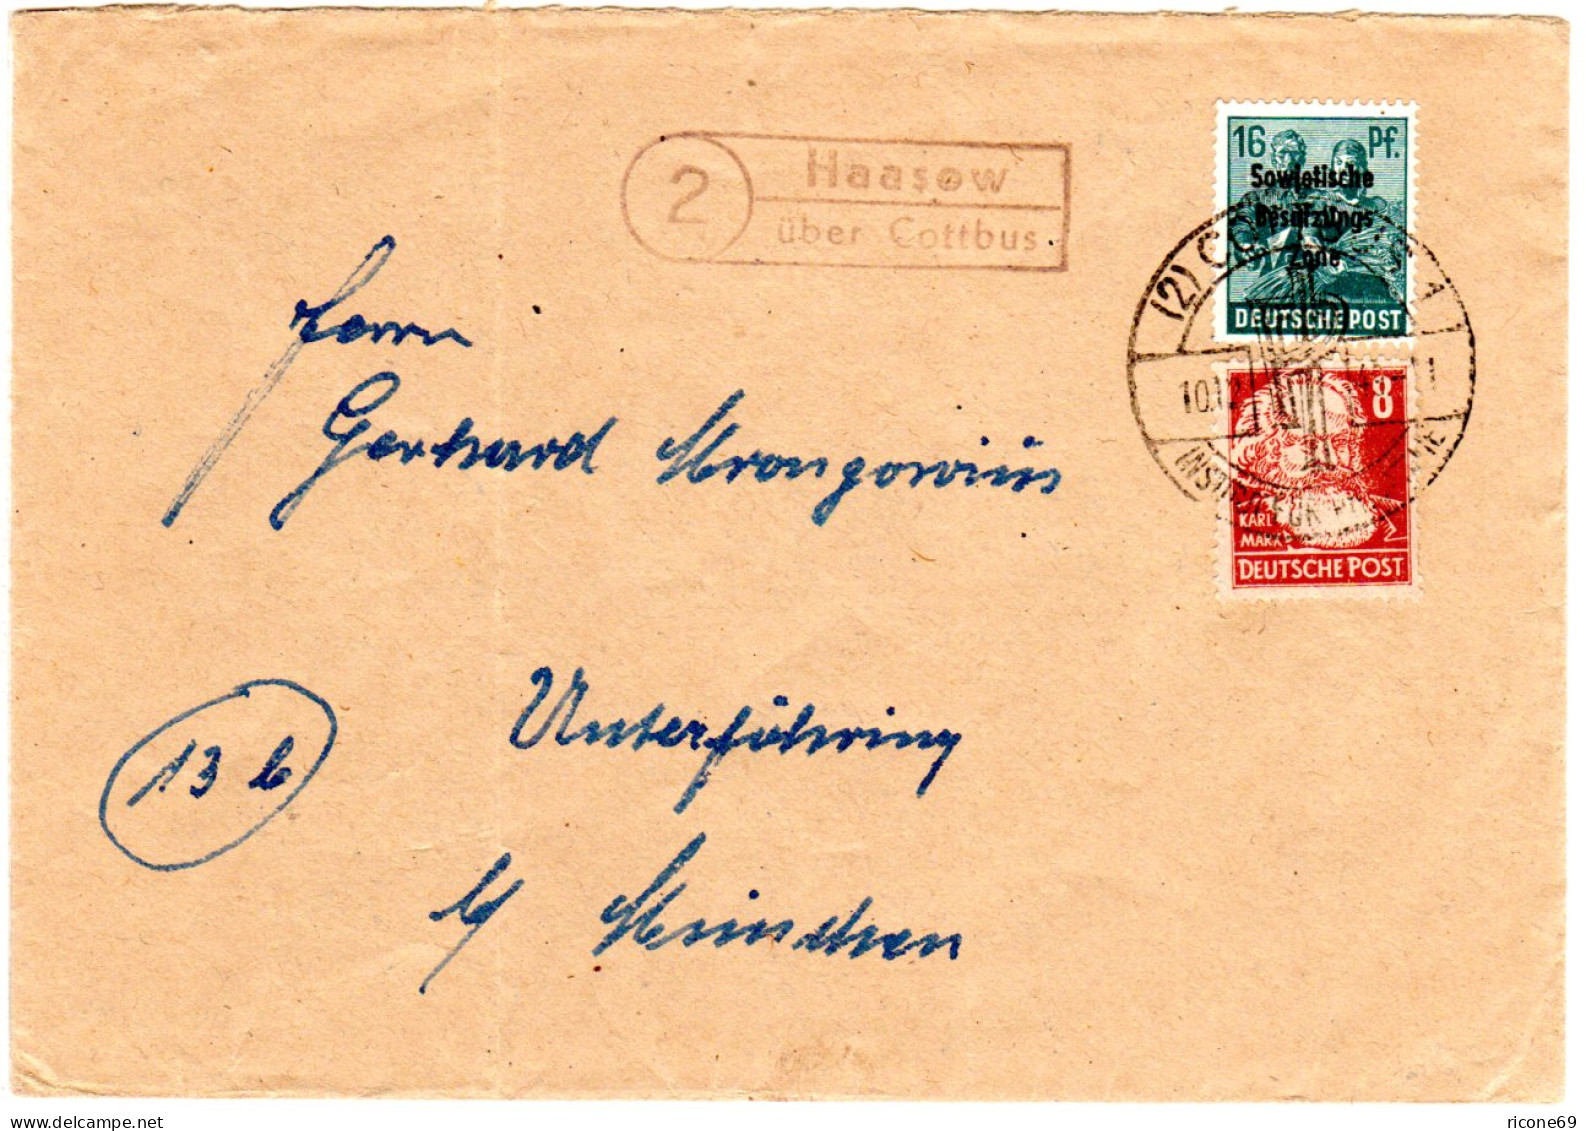 2
Haasow
über Cottbus
16 Pf.
Sowjetische
Besatzungs
Zone
DEUTSCHE POST
8
KARL
MARX
DEUTSCHE POST
(2) COTTBUS 1
10.12
INSTITUT FÜR
Herrn
Gerhard Mrongovius
Unterföhring
13 b
b/ München
www.delcampe.net
ricone69